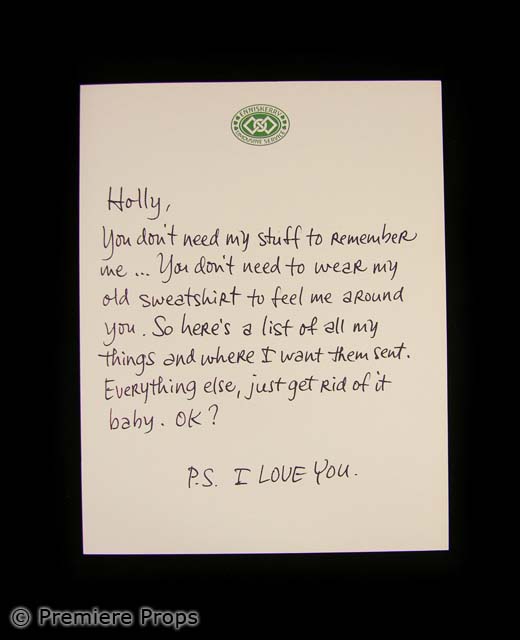 ENNISKERRY
LIMOUSINE SERVICE
Holly,
You don't need my stuff to remember
me ... You don't need to wear my
old sweatshirt to feel me around
you. So here's a list of all my
things and where I want them sent.
Everything else, just get rid of it
baby. OK?
P.S. I LOVE YOU.
© Premiere Props